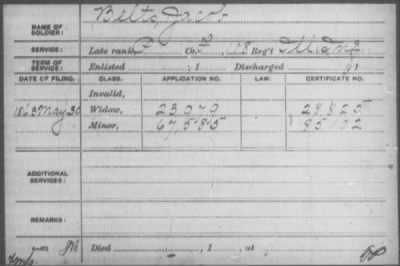 NAME OF SOLDIER: Belts, Jacob
SERVICE: Late rank P Co. F, 118 Reg't Ills Inf
TERM OF SERVICE: Enlisted , 1 Discharged , 1
DATE OF FILING. CLASS. APPLICATION NO. LAW. CERTIFICATE NO.
Invalid,
1863 May 30 Widow, 23,070 28825
Minor, 67,585 85122
ADDITIONAL SERVICES:
REMARKS:
Died , 1 , at